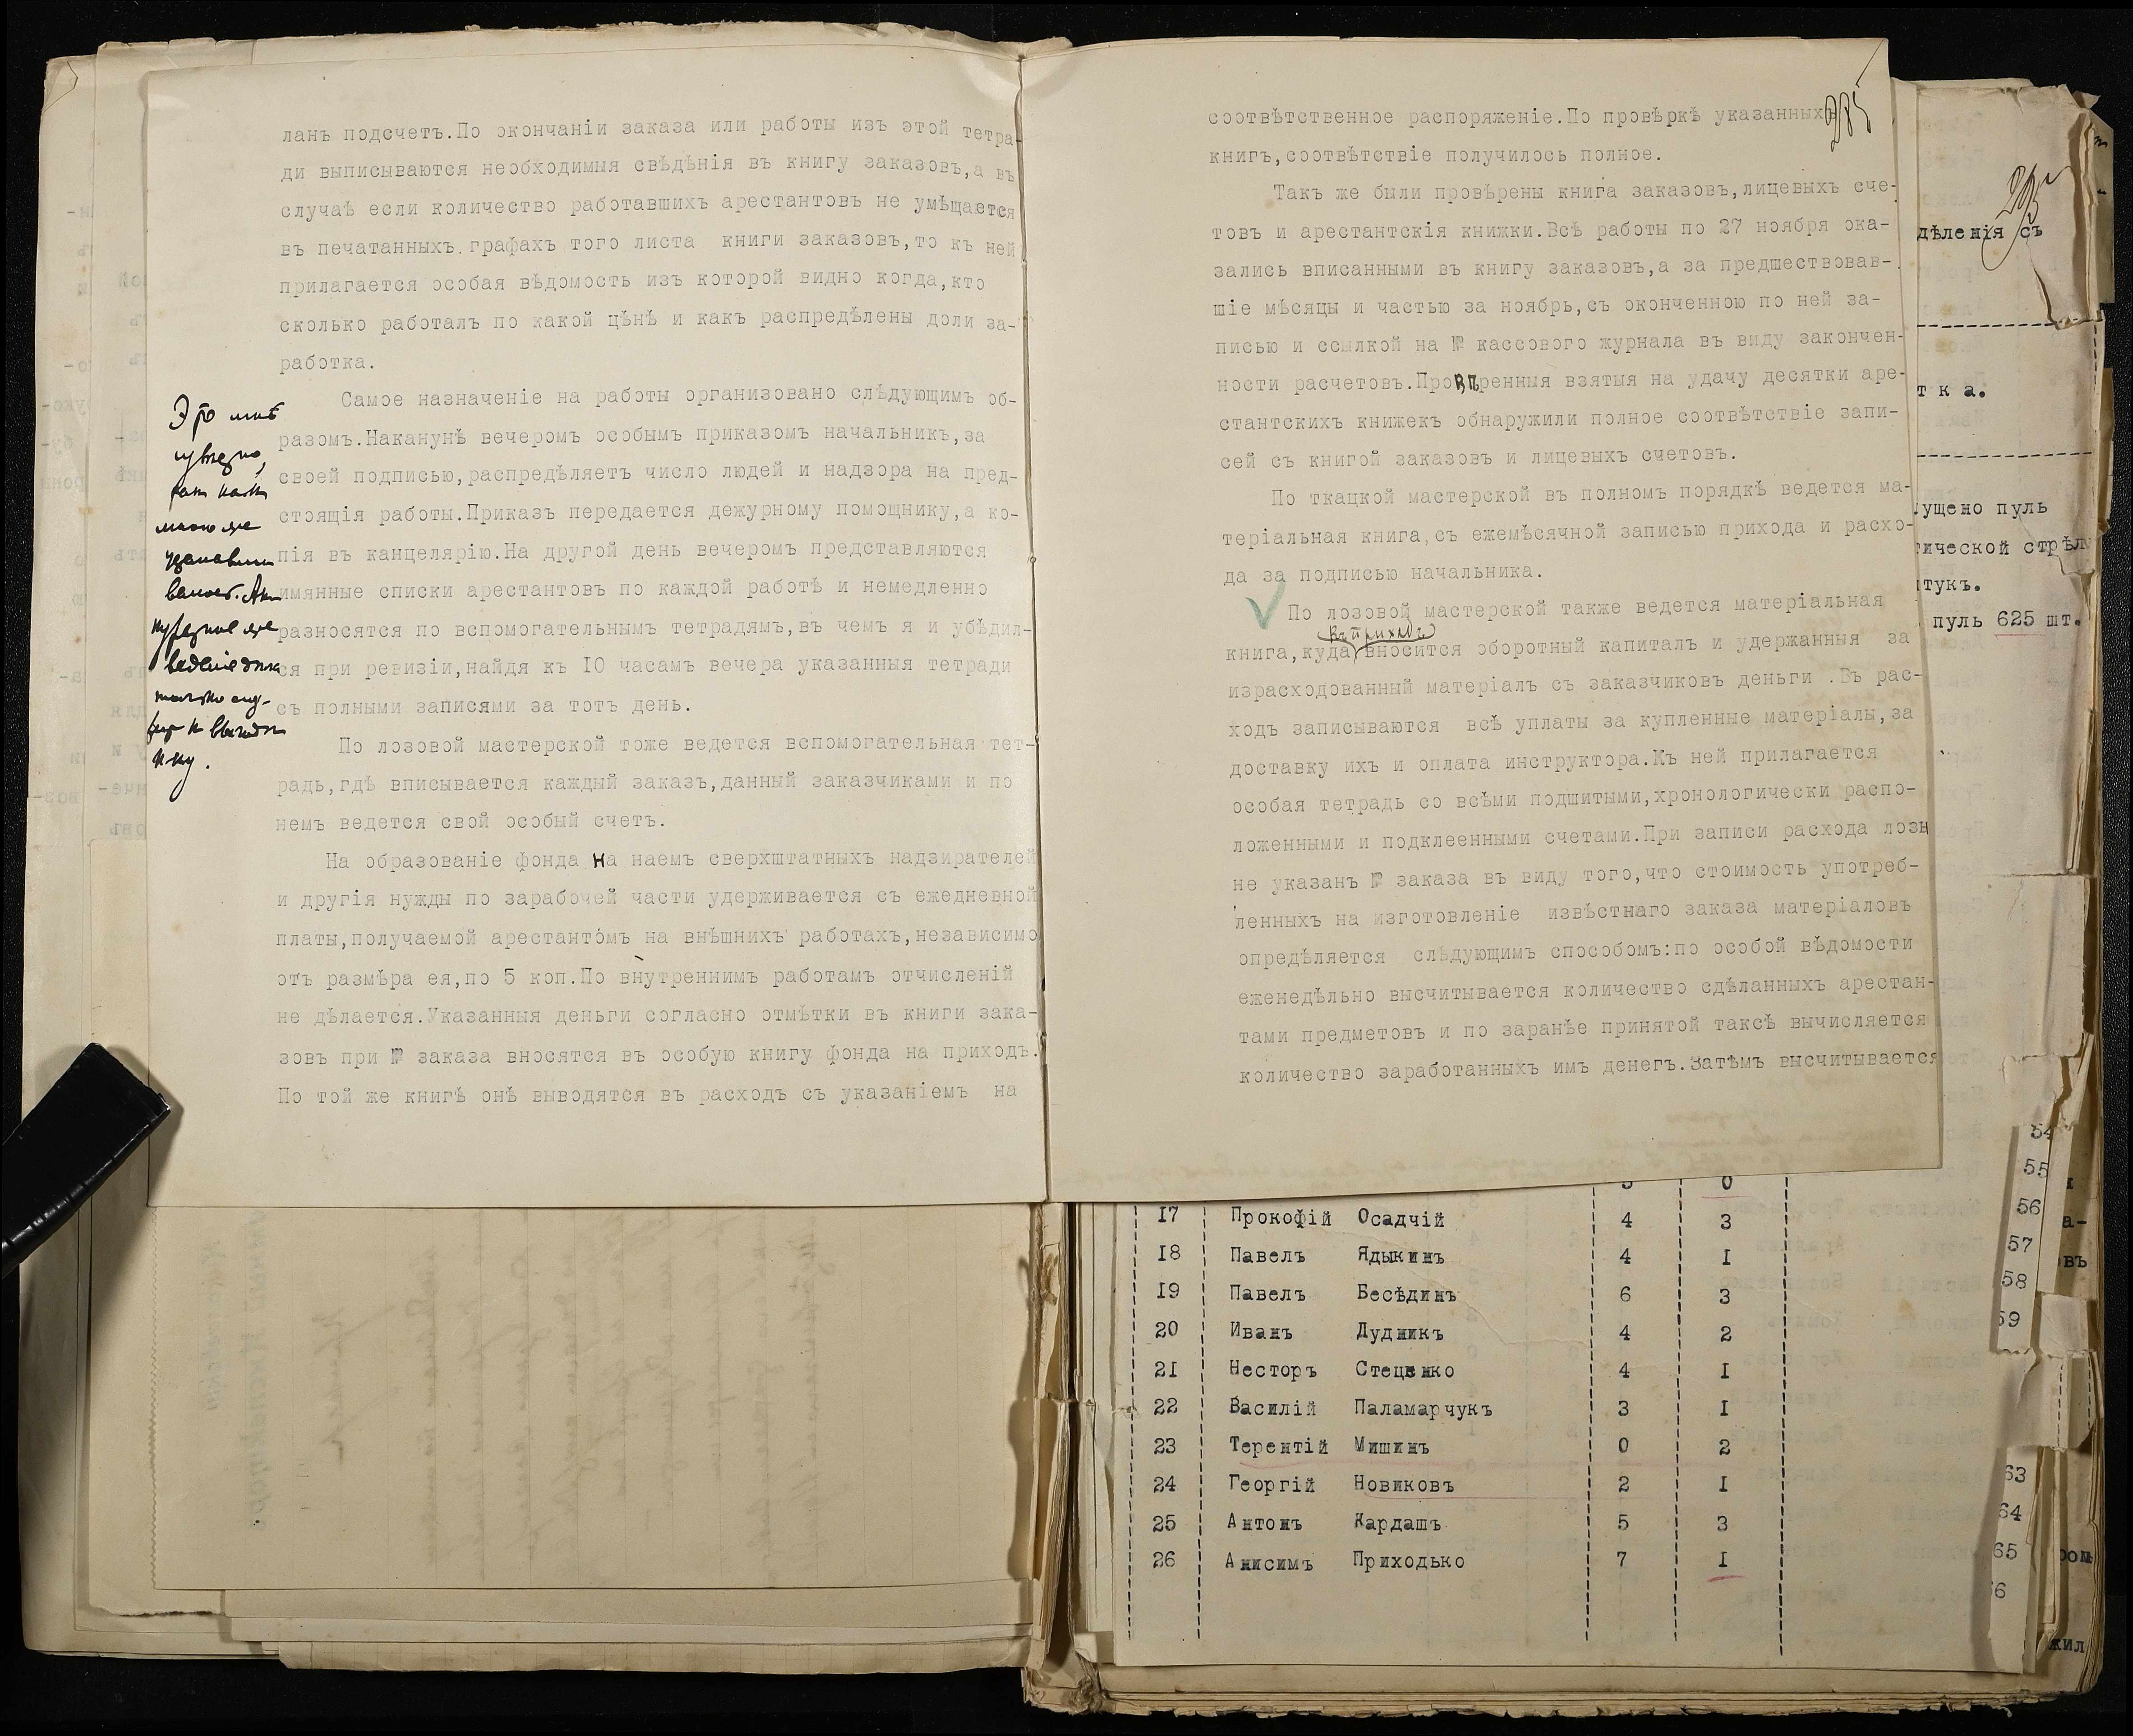 ланъ подсчетъ.По окончаніи заказа или работы изъ этой тетра-
ди выписываются необходимыя свѣдѣнія въ книгу заказовъ,а въ
случаѣ если количество работавшихъ арестантовъ не умѣщается
въ печатанныхъ графахъ того листа книги заказовъ,то къ ней
прилагается особая вѣдомость изъ которой видно когда,кто
сколько работалъ по какой цѣнѣ и какъ распредѣлены доли за-
работка.
Самое назначеніе на работы организовано слѣдующимъ об-
разомъ.Наканунѣ вечеромъ особымъ приказомъ начальникъ,за
своей подписью,распредѣляетъ число людей и надзора на пред-
стоящія работы.Приказъ передается дежурному помощнику,а ко-
пія въ канцелярію.На другой день вечеромъ представляются
имянные списки арестантовъ по каждой работѣ и немедленно
разносятся по вспомогательнымъ тетрадямъ,въ чемъ я и убѣдил-
ся при ревизіи,найдя къ I0 часамъ вечера указанныя тетради
съ полными записями за тотъ день.
По лозовой мастерской тоже ведется вспомогательная тет-
радь,гдѣ вписывается каждый заказъ,данный заказчиками и по
немъ ведется свой особый счетъ.
На образованіе фонда на наемъ сверхштатныхъ надзирателей
и другія нужды по заработчей части удерживается съ ежедневной
платы,получаемой арестантомъ на внѣшнихъ работахъ,независимо
отъ размѣра ея,по 5 коп.По внутреннимъ работамъ отчисленій
не дѣлается.Указанныя деньги согласно отмѣтки въ книги зака-
зовъ при № заказа вносятся въ особую книгу фонда на приходъ.
По той же книгѣ онѣ выводятся въ расходъ съ указаніемъ на
Это мнѣ
извѣстно,
такъ какъ
мною же
устанавли
валось.
же
веденіе
только
285
соотвѣтственное распоряженіе.По провѣркѣ указанныхъ
книгъ,соотвѣтствіе получилось полное.
Такъ же были провѣрены книга заказовъ,лицевыхъ сче-
товъ и арестантскія книжки.Всѣ работы по 27 ноября ока-
зались вписанными въ книгу заказовъ,а за предшествовав-
шіе мѣсяцы и частью за ноябрь,съ оконченною по ней за-
писью и ссылкой на № кассового журнала въ виду закончен-
ности расчетовъ.Провѣренныя взятыя на удачу десятки аре-
стантскихъ книжекъ обнаружили полное соотвѣтствіе запи-
сей съ книгой заказовъ и лицевыхъ счетовъ.
По ткацкой мастерской въ полномъ порядкѣ ведется ма-
теріальная книга,съ ежемѣсячной записью прихода и расхо-
да за подписью начальника.
По лозовой мастерской также ведется матеріальная
въ приходъ
книга,куда вносится оборотный капиталъ и удержанныя за
израсходованный матеріалъ съ заказчиковъ деньги .Въ рас-
ходъ записываются всѣ уплаты за купленные матеріалы,за
доставку ихъ и оплата инструктора.Къ ней прилагается
особая тетрадь со всѣми подшитыми,хронологически распо-
ложенными и подклеенными счетами.При записи расхода лозы
не указанъ № заказа въ виду того,что стоимость употреб-
ленныхъ на изготовленіе извѣстнаго заказа матеріаловъ
опредѣляется слѣдующимъ способомъ:по особой вѣдомости
еженедѣльно высчитывается количество сдѣланныхъ арестан-
тами предметовъ и по заранѣе принятой таксѣ вычисляется
количество заработанныхъ имъ денегъ.Затѣмъ высчитывается
дѣленія съ
тка.
пущено пуль
тической стрѣль
штукъ.
пуль 625 шт.
0
I7 Прокофій Осадчій 4 3
I8 Павелъ Ядыкинъ 4 I
I9 Павелъ Бесѣдинъ 6 3
20 Иванъ Дудникъ 4 2
2I Несторъ Стеценко 4 I
22 Василій Паламарчукъ 3 I
23 Терентій Мишинъ 0 2
24 Георгій Новиковъ 2 I
25 Антонъ Кардашъ 5 3
26 Анисимъ Приходько 7 I
54
55
56
57
58
59
63
64
65